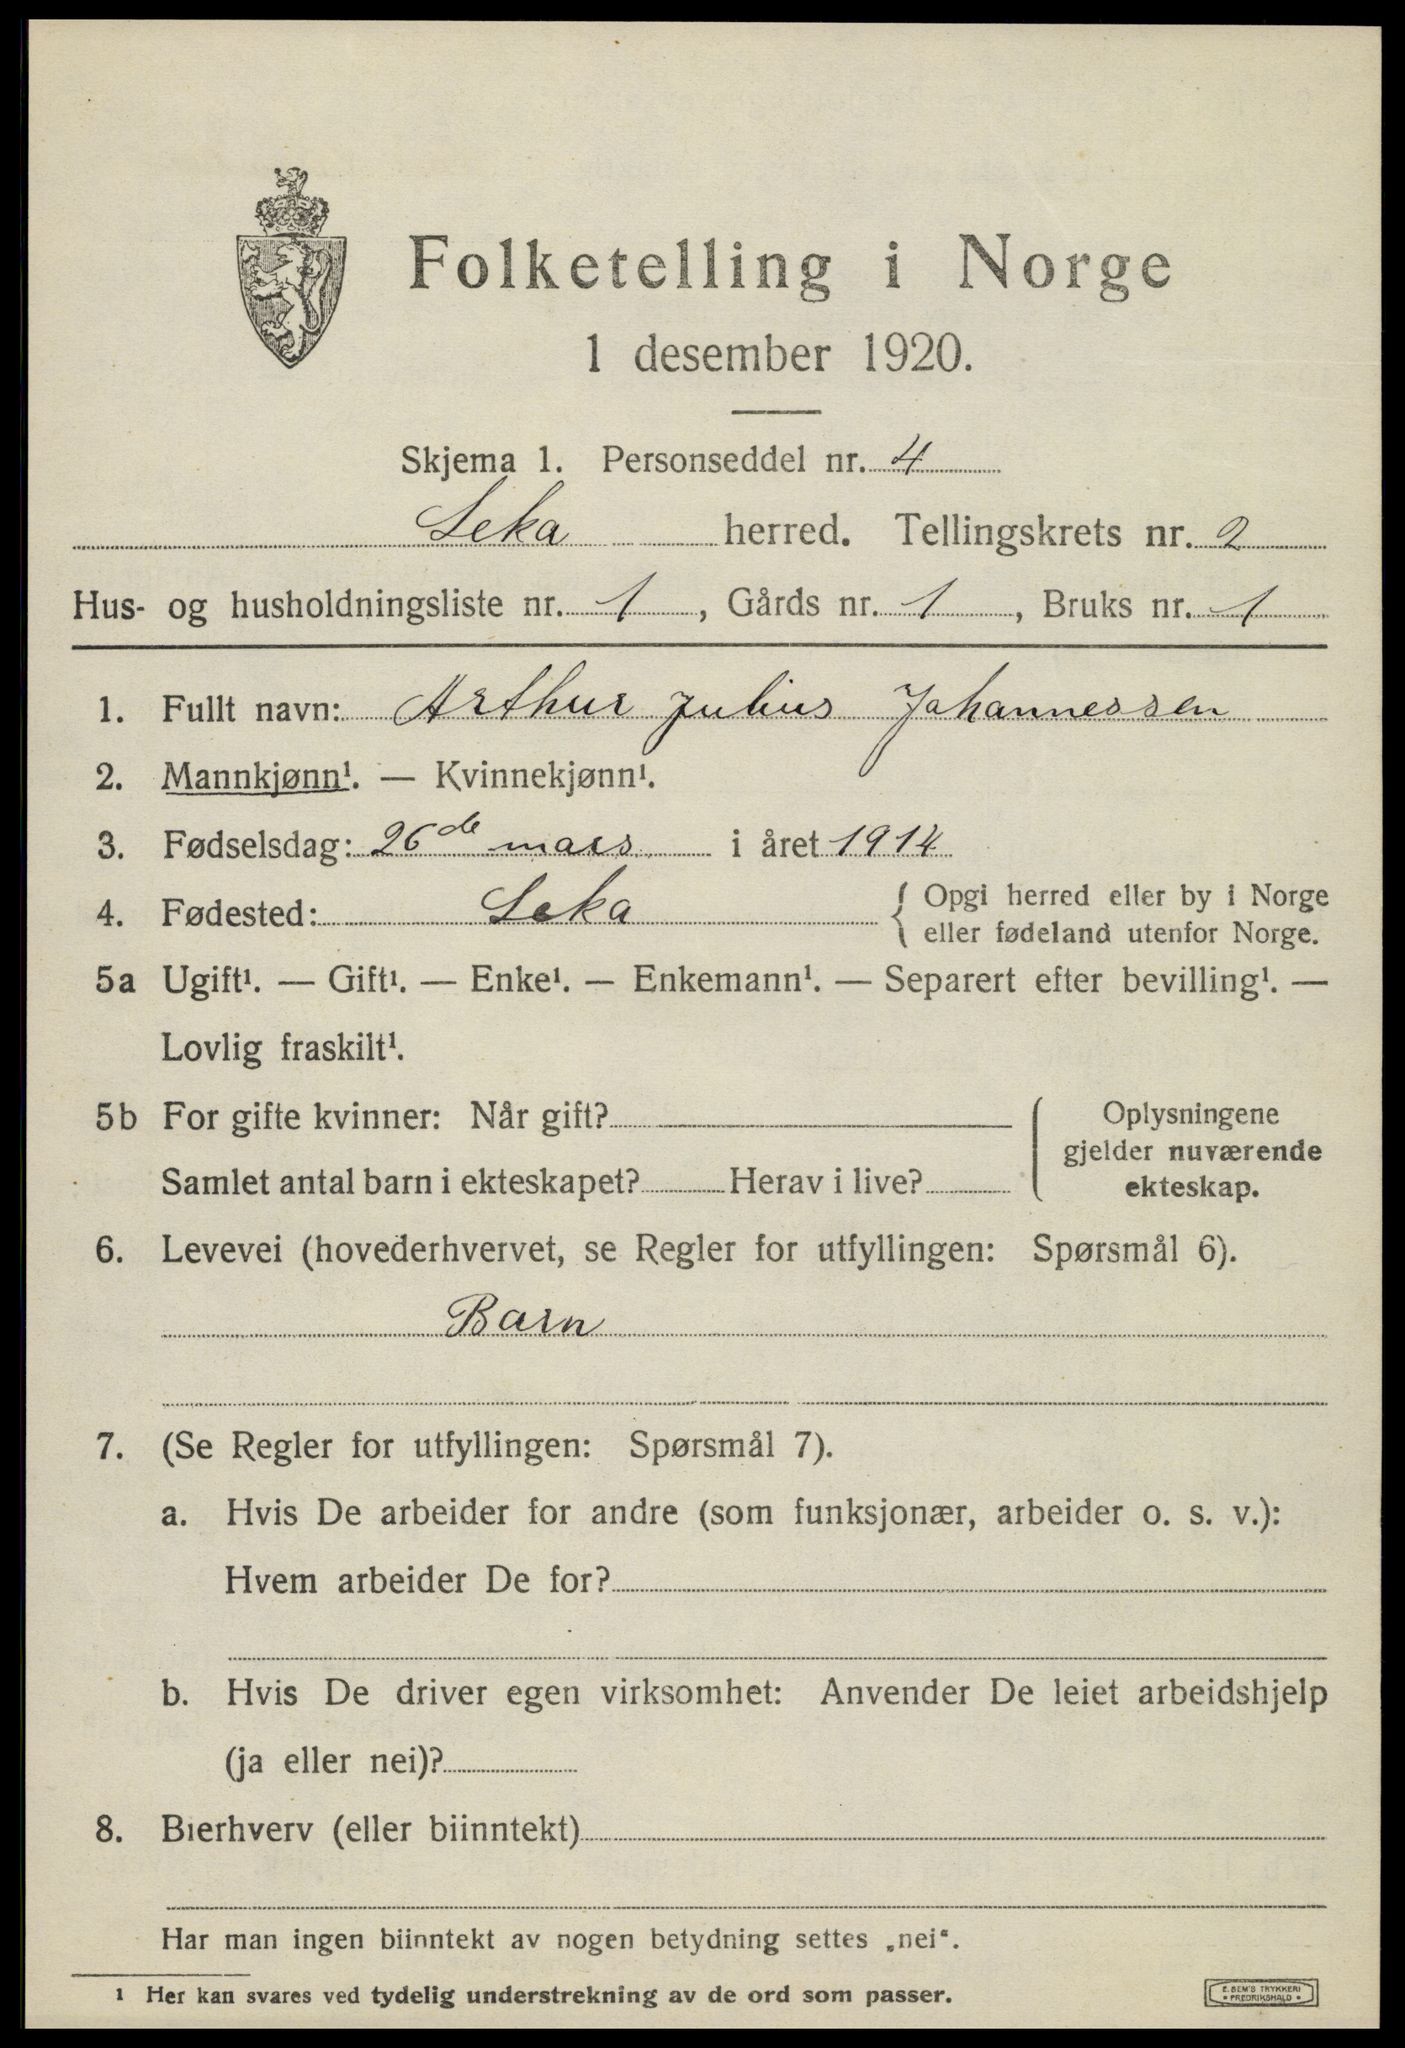 Folketelling i Norge
1 desember 1920.
Skjema 1. Personseddel nr. 4
Leka herred. Tellingskrets nr. 2
Hus- og husholdningsliste nr. 1, Gårds nr. 1, Bruks nr. 1
1. Fullt navn: Arthur Julius Johannessen
2. Mannkjønn¹. — Kvinnekjønn¹.
3. Fødselsdag: 26de mars i året 1914
4. Fødested: Leka { Opgi herred eller by i Norge
eller fødeland utenfor Norge.
5a Ugift¹. — Gift¹. — Enke¹. — Enkemann¹. — Separert efter bevilling¹. —
Lovlig fraskilt¹.
5b For gifte kvinner: Når gift?
Samlet antal barn i ekteskapet? Herav i live?
Oplysningene
gjelder nuværende
ekteskap.
6. Levevei (hovederhvervet, se Regler for utfyllingen: Spørsmål 6).
Barn
7. (Se Regler for utfyllingen: Spørsmål 7).
a. Hvis De arbeider for andre (som funksjonær, arbeider o. s. v.):
Hvem arbeider De for?
b. Hvis De driver egen virksomhet: Anvender De leiet arbeidshjelp
(ja eller nei)?
8. Bierhverv (eller biinntekt)
Har man ingen biinntekt av nogen betydning settes „nei“.
1 Her kan svares ved tydelig understrekning av de ord som passer.
E. SEM'S TRYKKERI
• FREDRIKSHALD •